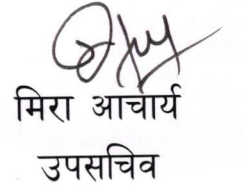 मिरा आचार्य
उपसचिव